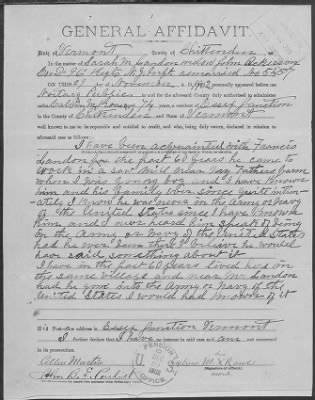 GENERAL AFFIDAVIT.
State of Vermont, County of Chittenden
In the matter of Sarah M. Landon widow John
N.Y. remarried No
ON THIS day of November, A. D. 1902 personally appeared before me
Notary Public in and for the aforesaid County, duly authorized to administer
oaths, Calvin M aged 74 years, a resident of Essex Junction
in the County of Chittenden and State of Vermont
well known to me to be reputable and entitled to credit, and who, being duly sworn, declared in relation to
aforesaid case as follows:
I have been acquainted with Francis
Landon for the past 60 years he came to
work in a saw mill near my Fathers Farm
when I was a young boy and I have known
him and his family ever since quite intim-
ately I know he was never in the Army or Navy
of the United States since I have known
him and I never heard him speak of being
in the Army or Navy of the United States
had he ever been there I believe he would
have said something about it
I have in the past 60 years lived here in
the same village and near Mr Landon
had he gone into the Army or Navy of the
United States I would had known of it
Post-office address is Essex Junction Vermont
I further declare that I have no interest in said case and am not concerned
in its prosecution.
Allen Martin
his
Calvin M. X
mark
John B. E.
PENSION OFFICE
U.
DEC
1902